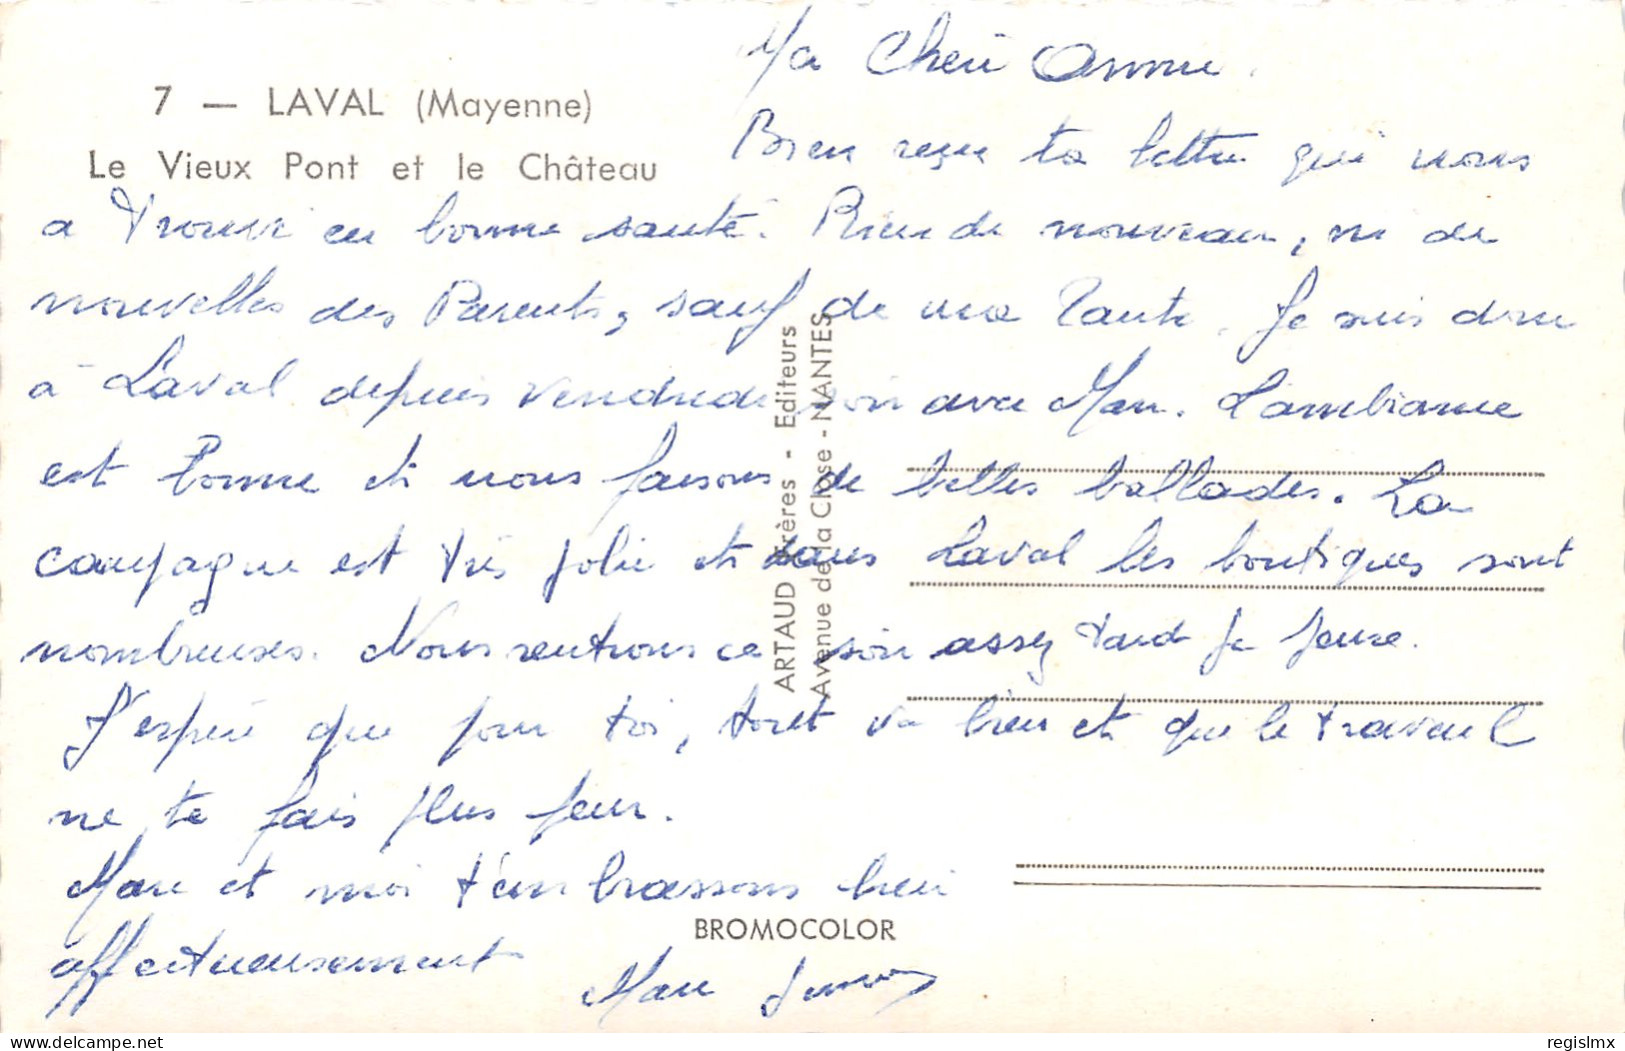 7 — LAVAL (Mayenne)
Le Vieux Pont et le Château
Ma Cheri Annie.
Bien reçu ta lettre qui nous
a trouvé en bonne santé. Rien de nouveau, ni de
nouvelles des Parents, sauf de ma Tante. Je suis donc
à Laval depuis vendredi soir avec Marc. L'ambiance
est bonne et nous faisons de belles ballades. La
campagne est très jolie et dans Laval les boutiques sont
nombreuses. Nous rentrons ce soir assez tard je pense.
J'espère que pour toi, tout va bien et que le travail
ne te fais plus peur.
Marc et moi t'embrassons bien
affectueusement
Marc
ARTAUD Frères - Editeurs
Avenue de la Close - NANTES
BROMOCOLOR
delcampe.net
regislmx